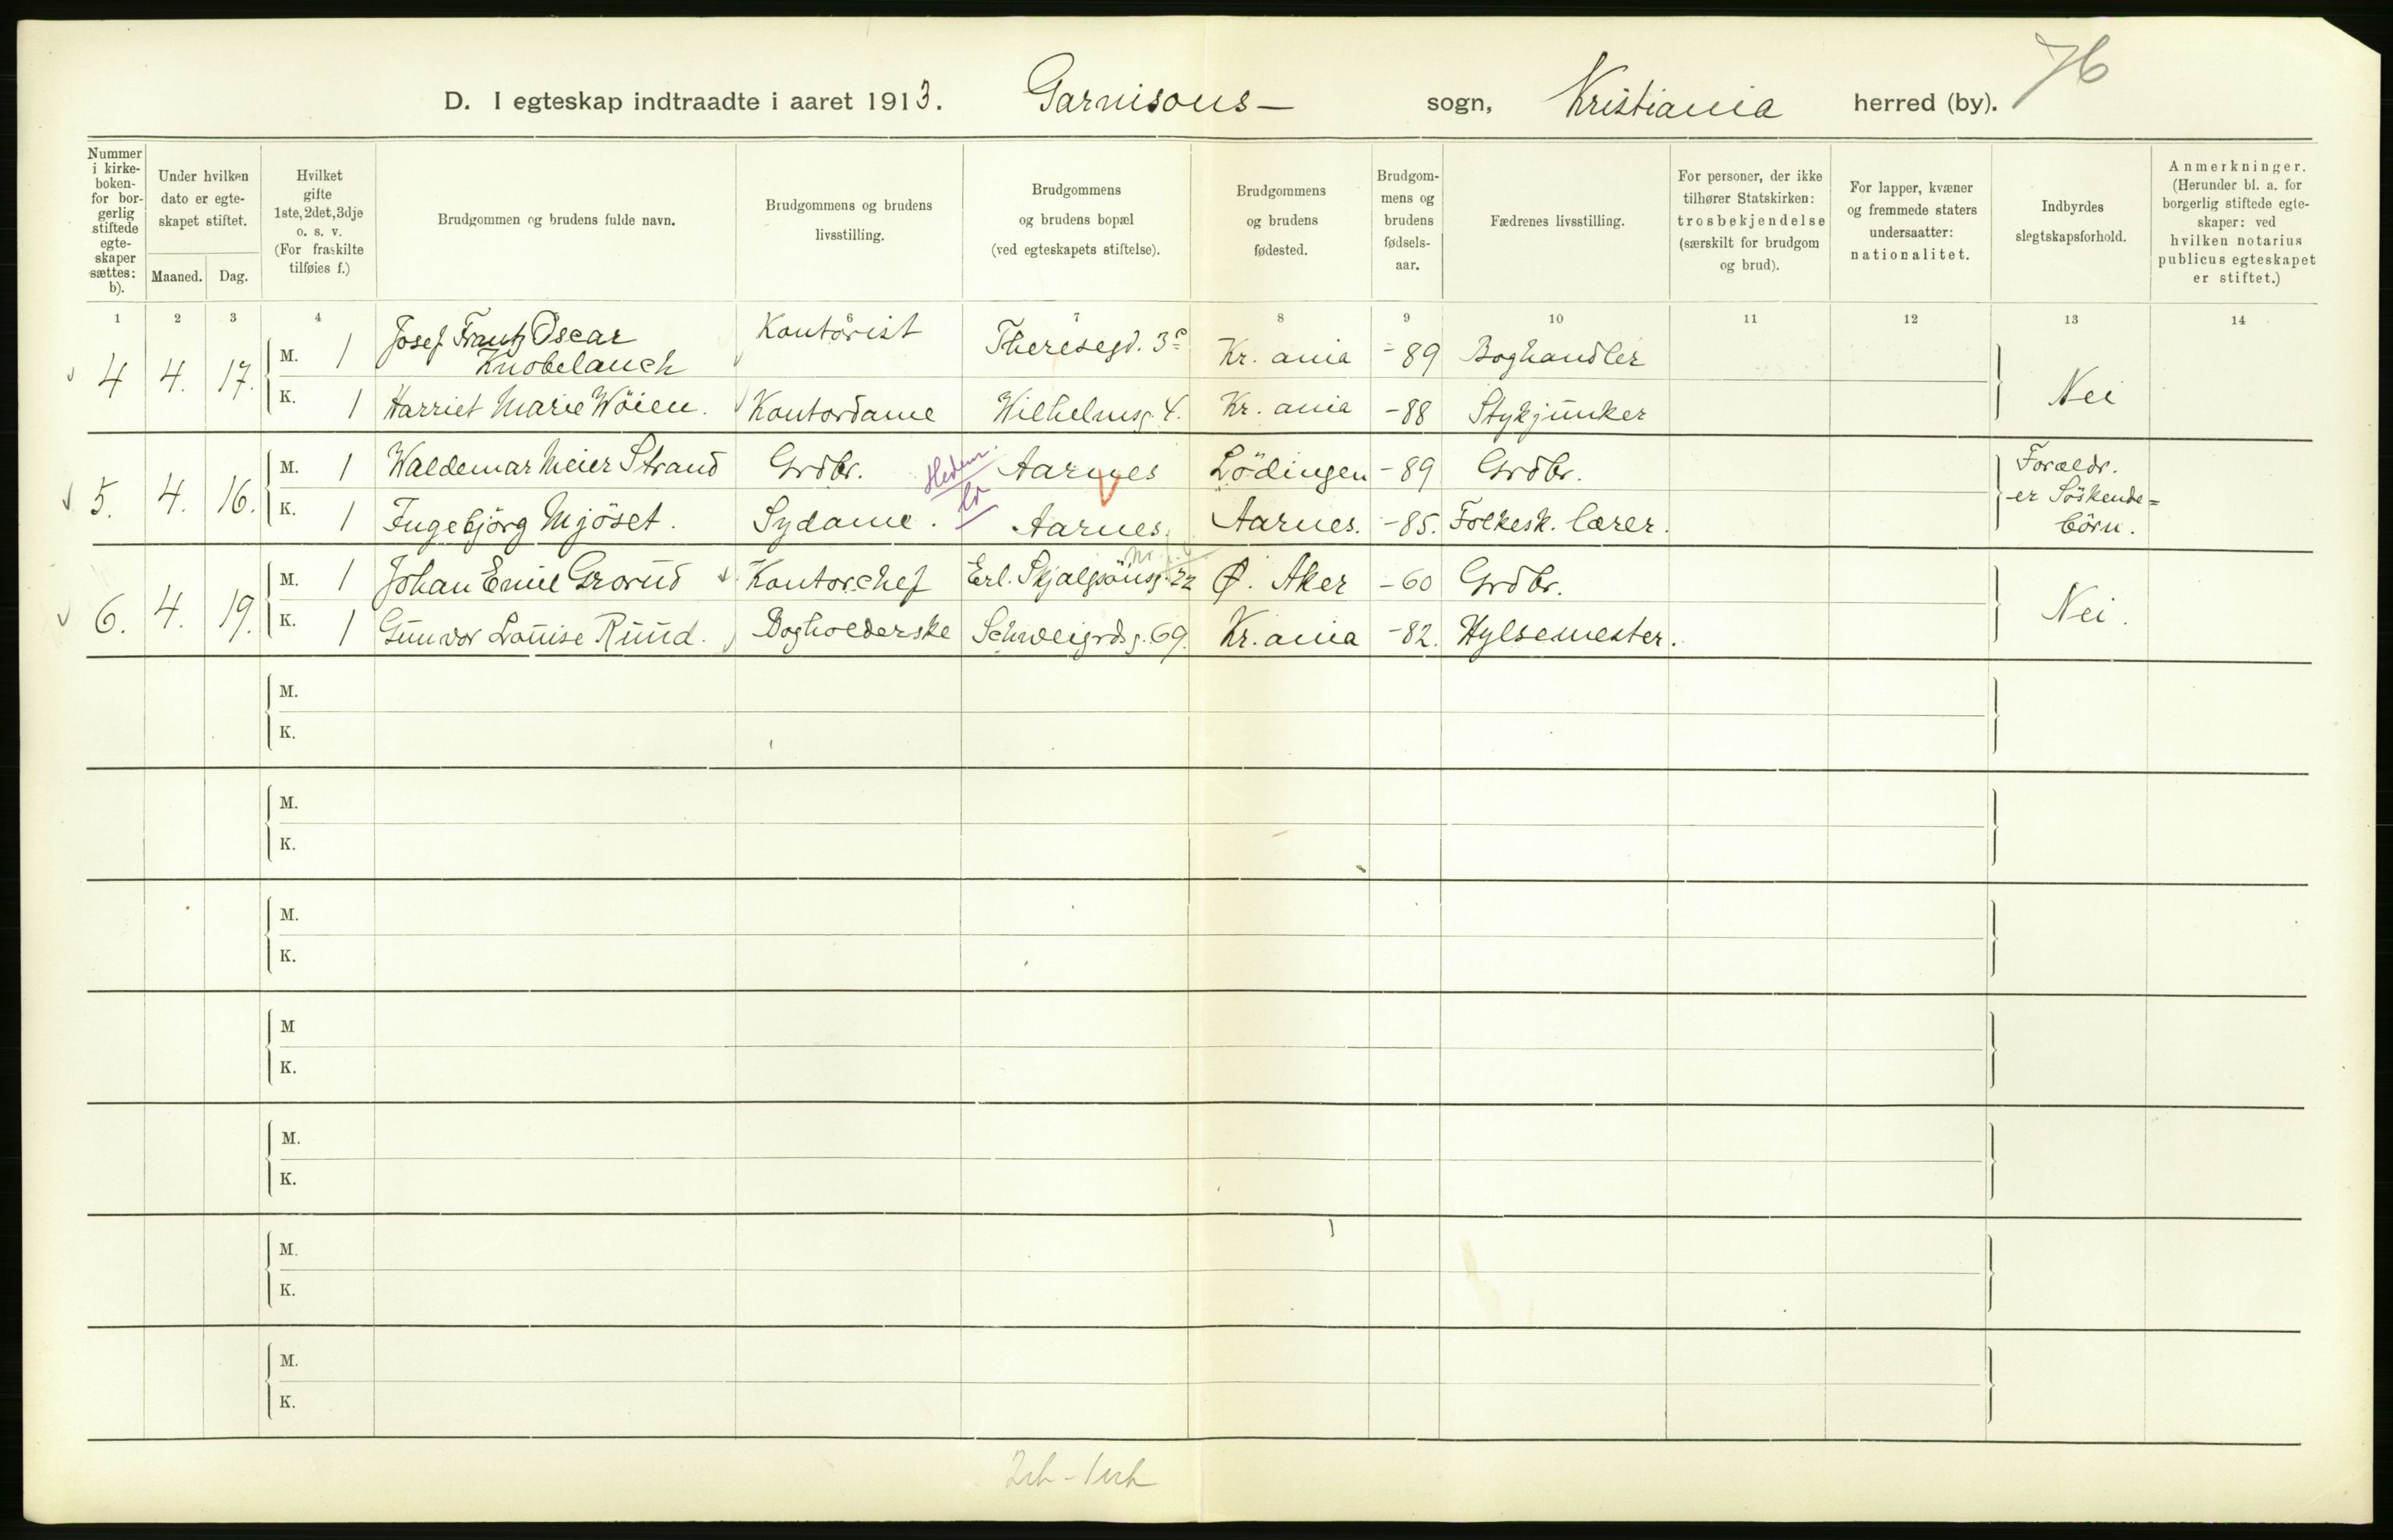 76
D. I egteskap indtraadte i aaret 1913. Garnisons- sogn, Kristiania herred (by).
Nummer i kirkeboken- for borgerlig stiftede egteskaper sættes: b).
Under hvilken dato er egteskapet stiftet.
Maaned. Dag.
Hvilket gifte 1ste, 2det, 3dje o. s. v. (For fraskilte tilføies f.)
Brudgommen og brudens fulde navn.
Brudgommens og brudens livsstilling.
Brudgommens og brudens bopæl (ved egteskapets stiftelse).
Brudgommens og brudens fødested.
Brudgommens og brudens fødselsaar.
Fædrenes livsstilling.
For personer, der ikke tilhører Statskirken: trosbekjendelse (særskilt for brudgom og brud).
For lapper, kvæner og fremmede staters undersaatter: nationalitet.
Indbyrdes slegtskapsforhold.
Anmerkninger. (Herunder bl. a. for borgerlig stiftede egteskaper: ved hvilken notarius publicus egteskapet er stiftet.)
1 2 3 4 6 7 8 9 10 11 12 13 14
4 4. 17. M. 1 Josef Frantz Oscar Knobelauch Kontorist Theresegd. 3c Kr. ania -89 Boghandler
K. 1 Harriet Marie Wöien. Kontordame Wilhelmsg. 4. Kr. ania -88 Stykjunker
Nei
5. 4. 16. M. 1 Waldemar Meier Strand Grdbr. Aarnes Lödingen -89 Grdbr.
K. 1 Ingebjörg Mjöset. Sydame. Aarnes. Aarnes. -85. Folkesk. lærer.
Forældr.
er Söskende=
börn.
6. 4. 19. M. 1 Johan Emil Grorud Kontorchef Erl. Skjalgsönsg. 22 Ø. Aker -60 Grdbr.
K. 1 Gunvor Louise Ruud. Bogholderske Schweigrdsg. 69. Kr. ania -82. Hylsemester.
Nei.
M.
K.
M.
K.
M.
K.
M
K.
M.
K.
M.
K.
M.
K.